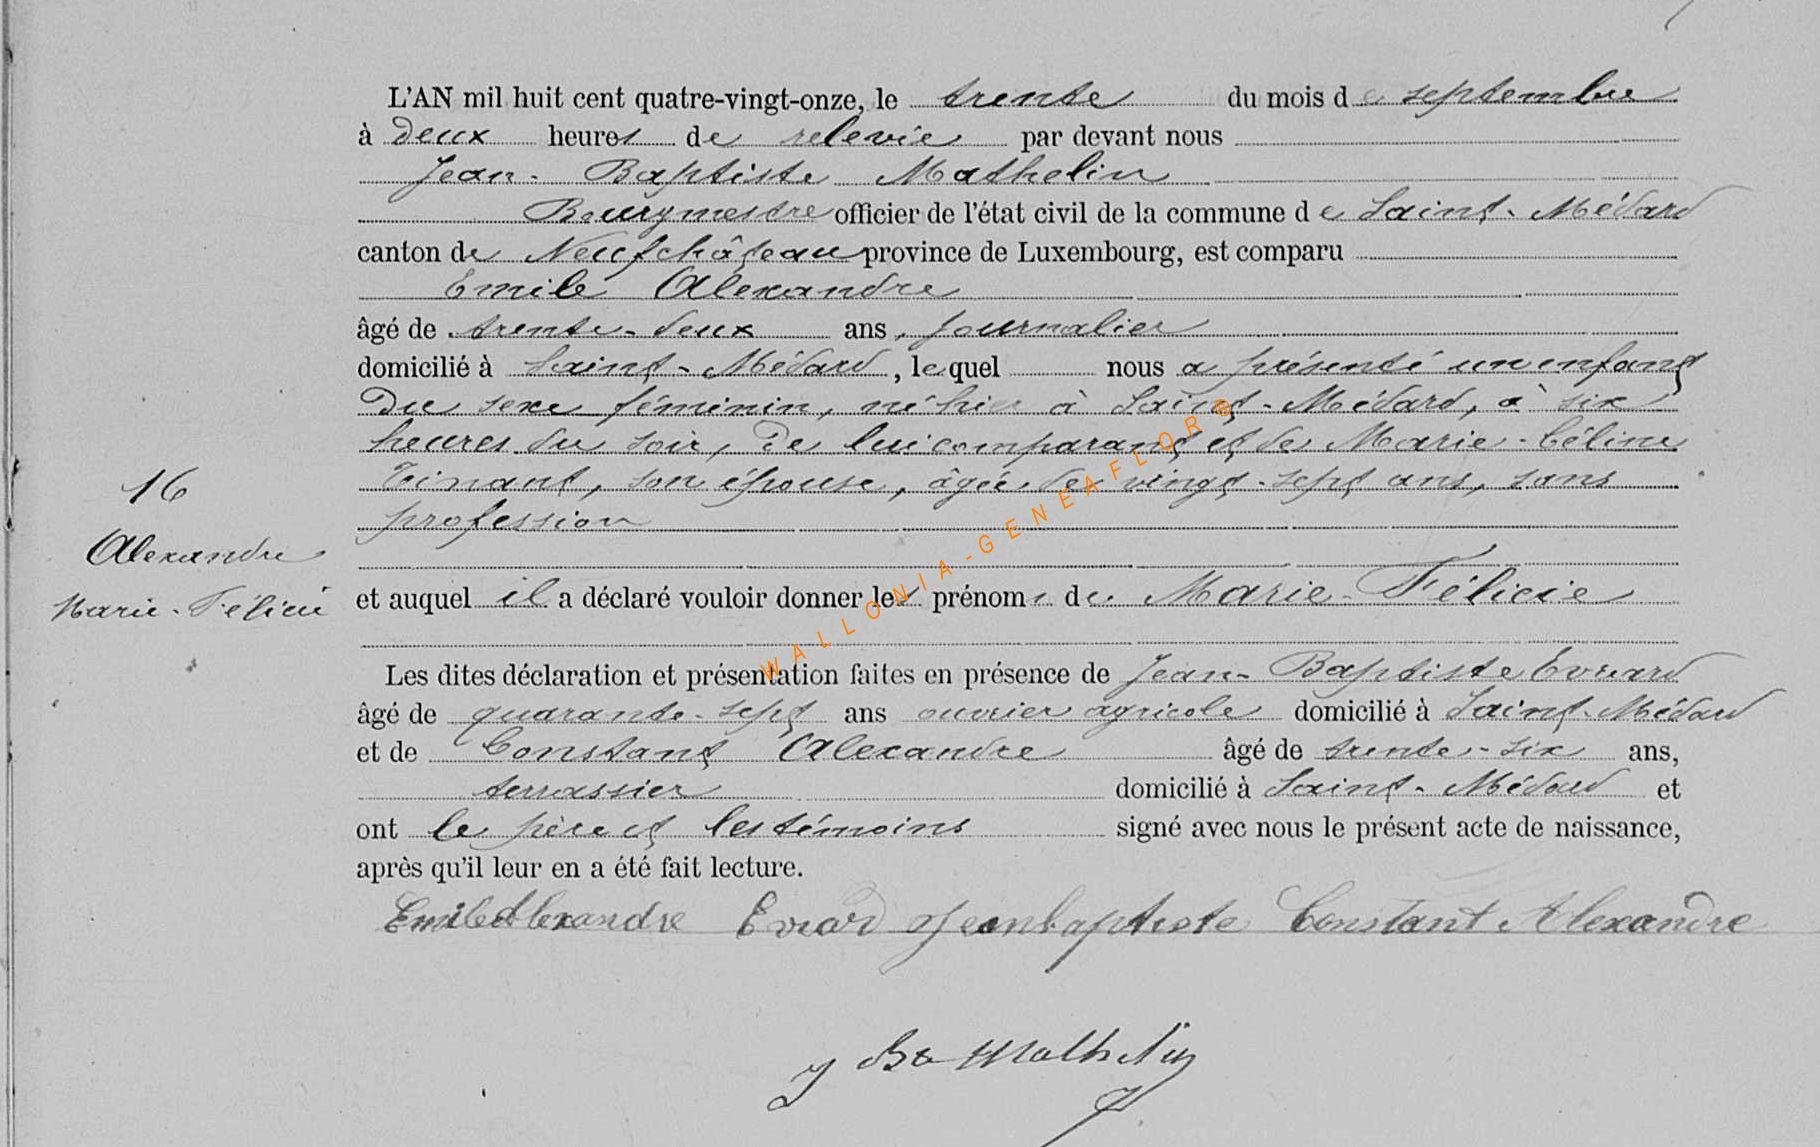 L'AN mil huit cent quatre-vingt-onze, le trente du mois de septembre
à deux heures de relevée par devant nous
Jean-Baptiste Mathelin
Bourgmestre officier de l'état civil de la commune de Saint-Médard
canton de Neufchâteau province de Luxembourg, est comparu
Emile Alexandre
âgé de trente-deux ans, journalier
domicilié à Saint-Médard, lequel nous a présenté un enfant
du sexe féminin, né hier à Saint-Médard, à six
heures du soir, de lui comparant et de Marie-Céline
Tinant, son épouse, âgée de vingt-sept ans, sans
profession
16
Alexandre
Marie-Félicie
et auquel il a déclaré vouloir donner les prénoms de Marie-Félicie
Les dites déclaration et présentation faites en présence de Jean-Baptiste Evrard
âgé de quarante-sept ans ouvrier agricole domicilié à Saint-Médard
et de Constant Alexandre âgé de trente-six ans,
terrassier domicilié à Saint-Médard et
ont le père et les témoins signé avec nous le présent acte de naissance,
après qu'il leur en a été fait lecture.
Emile Alexandre Evrard Jeanbaptiste Constant Alexandre
J Bte Mathelin
WALLONIA-GENEAFLOR®